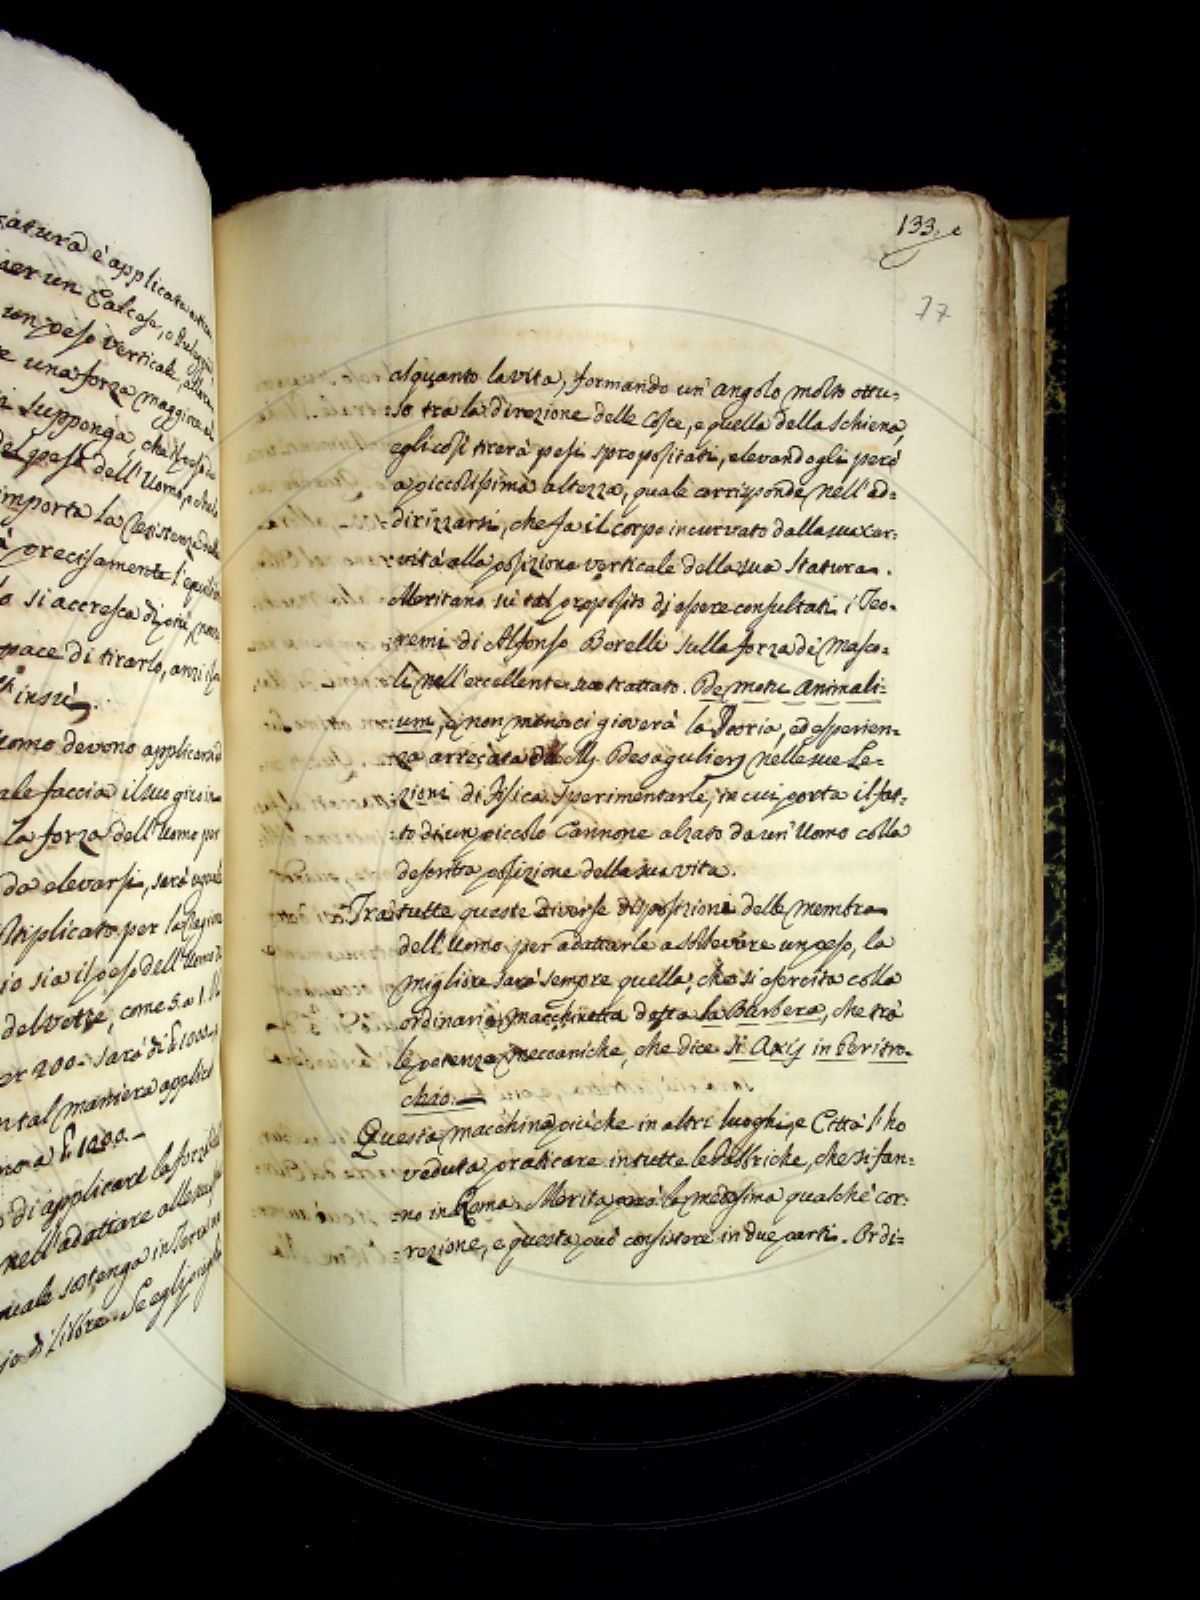 atura è applicata
un Calcese, o
un peso verticale, allora
una forza maggiore
supponga, che il peso
del peso dell'Uomo, e che la
importa la Resistenza della
precisamente l'equili
si accresca di più, non
pace di tirarlo, anzi
insù.
uomo devono applicarsi
ale faccia il suo giro in
la forza dell'Uomo per
da elevarsi, sarà uguale
ltiplicato per la Ragione
io sia il peso dell'Uomo
del Vette, come 5. a 1.
er 200. sarà di £ 1000.
ental maniera applica
£ 1200.
di applicare la forza
nell'adattare alle sue
uale sostenga in Terra
Libbre. Se egli piegh
133.
77
alquanto la vita, formando un' angolo molto ottu-
-so tra la direzione delle Cosce, e quella della schiena,
egli così tirerà pesi spropositati, elevandogli però
a piccolissima altezza, quale corrisponde nell'ad-
-dirizzarsi, che fa il corpo incurvato dalla sua Cur-
-vità alla posizione verticale della sua statura.
Meritano su tal proposito di essere consultati i Teo-
-remi di Alfonso Borelli sulla forza de' Musco-
-li nell'eccellente suo trattato. De motu animali-
-um, e non meno ci gioverà la Teoria, ed esperien-
-za arrecata dal M. Desaguliers nelle sue Le-
-zioni di Fisica Sperimentale, in cui porta il fat-
-to di un piccolo Cannone alzato da un' Uomo colla
descritta posizione della sua vita.
Tra tutte queste diverse disposizioni delle membra
dell'Uomo per adattarle a sollevare un peso, la
migliore sarà sempre quella, che si esercita colla
ordinaria macchinetta detta la Burbera, che trà
le potenze meccaniche, che dice si Axis in Peritro-
chio.
Questa macchina più che in altri luoghi, e Città l'ho
veduta praticare in tutte le Fabbriche, che si fan-
-no in Roma. Merita però la medesima qualche cor-
-rezione, e questa può consistere in due parti. Ordi-